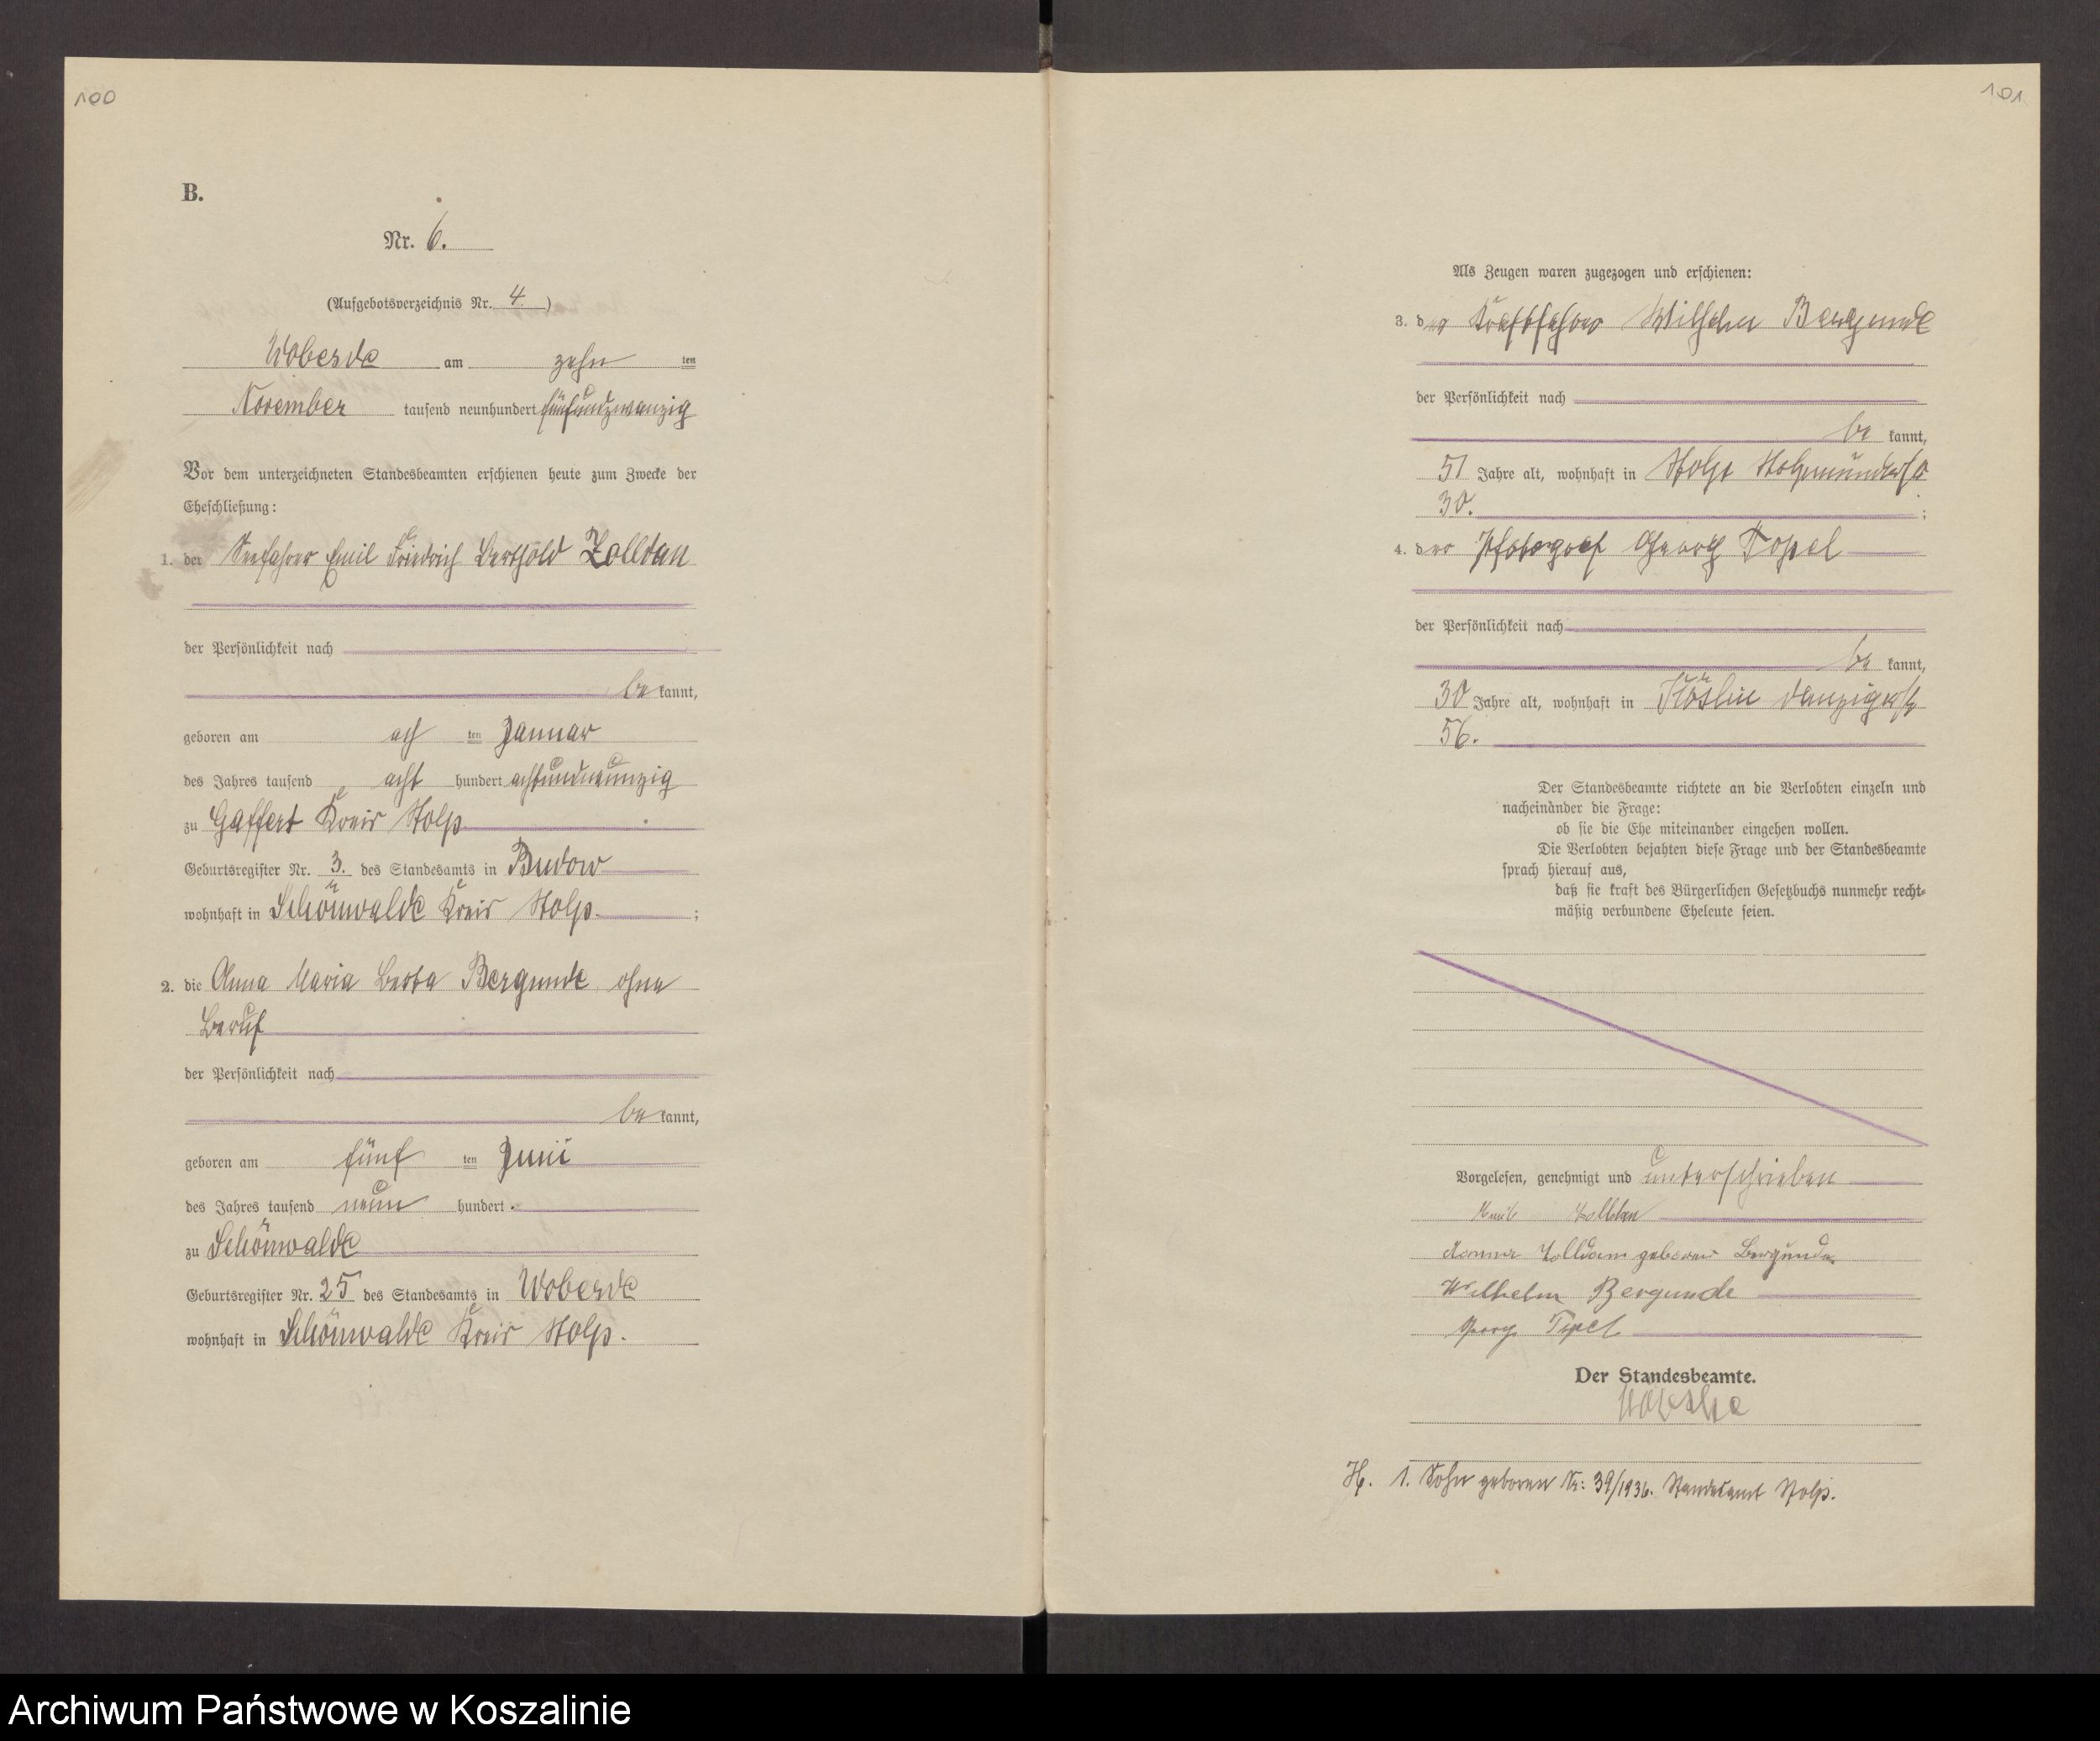 100
B.
Nr. 6.
(Aufgebotsverzeichnis Nr. 4)
Woberde am zehn ten
November tausend neunhundert fünfundzwanzig
Vor dem unterzeichneten Standesbeamten erschienen heute zum Zwecke der
Eheschließung:
1. der Seefahrer Emil Friedrich Berthold Zolldan
der Persönlichkeit nach
be kannt,
geboren am ach ten Januar
des Jahres tausend acht hundert achtundneunzig
zu Gaffert Kreis Stolp
Geburtsregister Nr. 3. des Standesamts in Budow
wohnhaft in Schönwalde Kreis Stolp. ;
2. die Anna Maria Berta Bergunde ohne
Beruf
der Persönlichkeit nach
be kannt,
geboren am fünf ten Juni
des Jahres tausend neun hundert .
zu Schönwalde
Geburtsregister Nr. 25 des Standesamts in Woberde
wohnhaft in Schönwalde Kreis Stolp.
101
Als Zeugen waren zugezogen und erschienen:
3. der Kraftfahrer Wilhelm Bergunde
der Persönlichkeit nach
be kannt,
51 Jahre alt, wohnhaft in Stolp Stolpmünderstr
30. ;
4. der Photograf Georg Topel
der Persönlichkeit nach
be kannt,
30 Jahre alt, wohnhaft in Köslin Danzigerstr
56.
Der Standesbeamte richtete an die Verlobten einzeln und
nacheinander die Frage:
ob sie die Ehe miteinander eingehen wollen.
Die Verlobten bejahten diese Frage und der Standesbeamte
sprach hierauf aus,
daß sie kraft des Bürgerlichen Gesetzbuchs nunmehr recht-
mäßig verbundene Eheleute seien.
Vorgelesen, genehmigt und unterschrieben
Emil Zolldan
Anna Zolldan geboren Bergunde.
Wilhelm Bergunde
Georg Topel
Der Standesbeamte.
H. 1. Sohn geboren Nr: 39/1936. Standesamt Stolp.
Archiwum Państwowe w Koszalinie